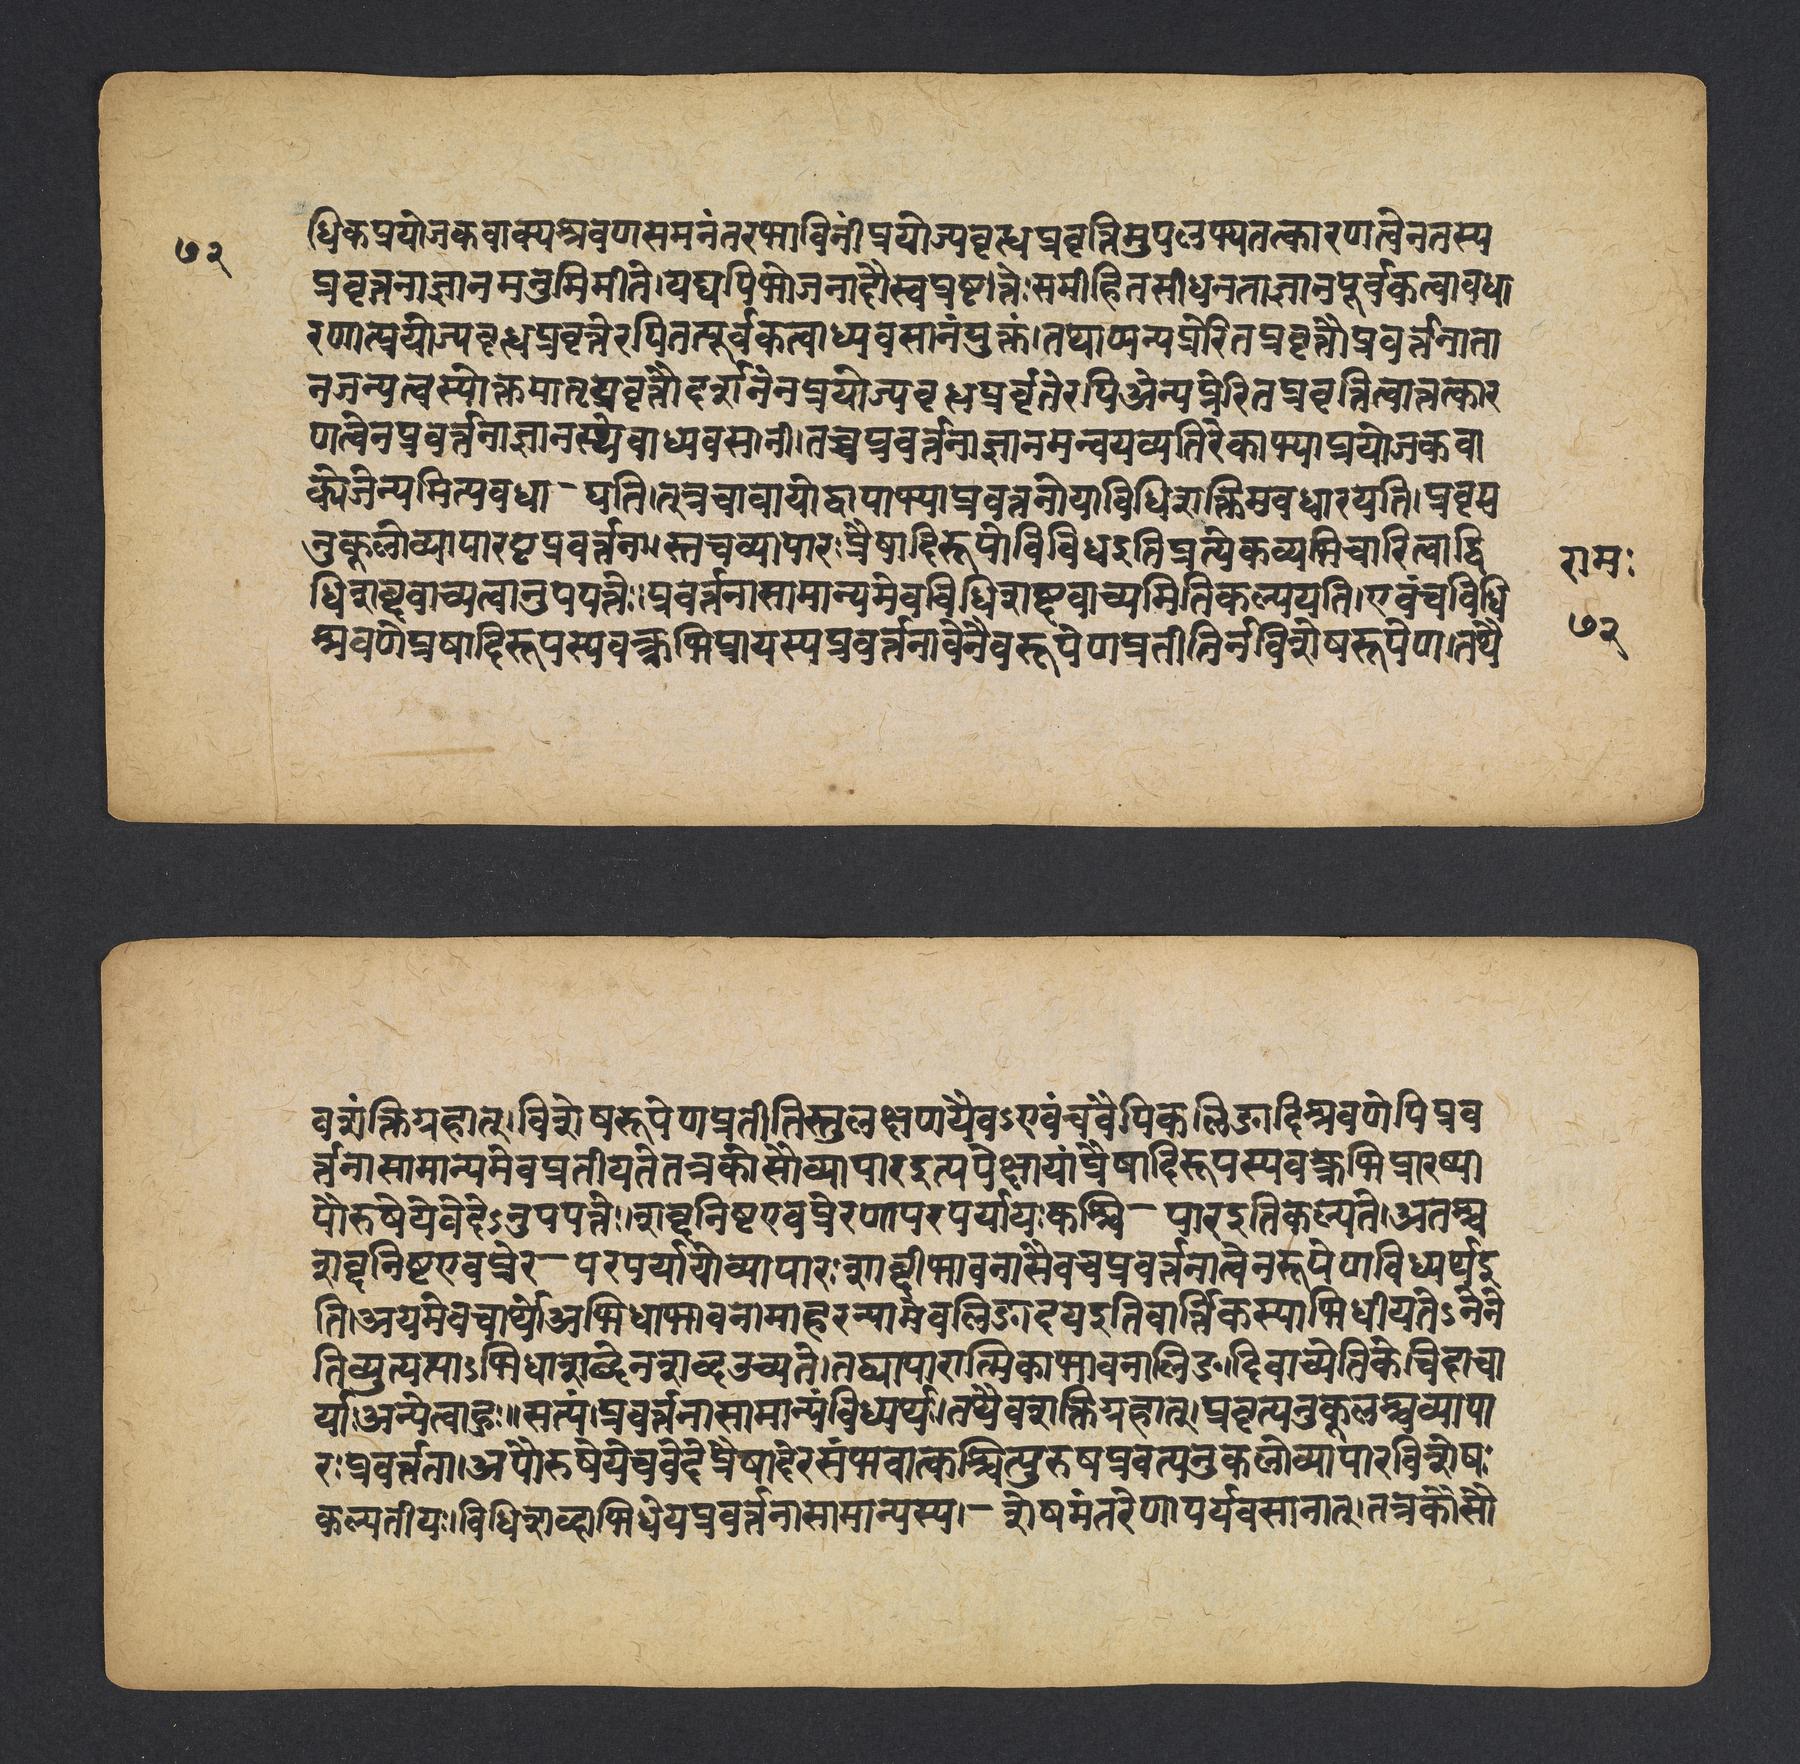 ७२
धिकप्रयोजकवाक्यश्रवणसमनंतरभाविनींप्रयोज्यवृत्धप्रवृत्तिमुपलभ्यतत्कारणत्वेनतस्य
प्रवृत्तनाज्ञानमनुमिमीते।यद्यपिभोजनादौस्वप्रष्ट।त्तेःसमीहितसीधनताज्ञानपूर्वकत्वावधा
रणात्प्रयोज्यवृत्धप्रवृत्तेरपितत्पूर्वकत्वाध्यवसानंपुक्तं।तथाप्यन्यप्रेरितप्रवृत्तौप्रवर्त्तनाता
नजन्यत्वस्योक्तमातृप्रवृत्तौदर्शानेनप्रयोज्यवृधप्रवृर्तेरपिअन्यप्रेरितप्रवृत्तित्वात्तत्कार
णत्वेनप्रवर्त्तनाज्ञानस्यैवाध्यवसानी।तच्चप्रवर्त्तनाज्ञानमन्वयव्यतिरेकाभ्याप्रयोजकवा
क्येजन्यमित्यवधा-यति।तत्रचावायोद्वापाभ्याप्रवत्तनोयाविधिशक्तिमवधारयति।प्रवृत्त्य
नुकूलोव्यापारष्टप्रवर्त्तना॥स्तचव्यापारःप्रैषादिरूपोविविधइतिप्रत्येकव्यभिचारित्वाद्वि
धिशब्दवाच्यत्वानुपपत्तेः।प्रवर्त्तनासामान्यमेवविधिशब्दवाच्यमितिकल्पयति।एवंचविधि
श्रवणेप्रषादिरूपस्यवक्त्रभिप्रायस्यप्रवर्त्तनावेनैवरूपेणप्रतीतिर्नविशेषरूपेण।तथै
रामः
७२
वशक्तिग्रहात्।विशेषरूपेणप्रतीतिस्तुलक्षणयैवऽएवंचवैपिकलिङादिश्रवणेपिप्रव
र्त्तनासामान्यमेवप्रतीयतेतत्रकोसौव्यापारइत्यपेक्षायांप्रैषादिरूपस्यवक्त्रभिप्रारष्या
पौरुषेयेवेदेऽनुपपत्तेः।शब्दनिष्टएवप्रेरणापरपर्यायःकश्चि-पारइतिकल्प्यते।अतश्च
शब्दनिष्टएवप्रेर-परपर्यायोव्यापारःशाब्दीभावनासैवचप्रवर्त्तनात्वेनरूपेणविध्यर्थइ
ति।अयमेवचार्थोअभिधाभावनामाहरन्यामेवलिङादयइतिवार्त्तिकस्याभिधीयतेऽनेने
तिव्युत्पत्त्याऽभिधाशब्देनशब्दउच्यते।तद्यापारात्मिकाभावनालिङादिवाच्येतिकेचिदाचा
र्या।अन्येत्वाहुः॥सत्यं।प्रवर्त्तनासामान्यंविध्यर्थः।तथैवशक्तिग्रहात्।प्रवृत्यनुकूलश्चव्यापा
रःप्रवर्त्तना।अपौरुषेयेचवेदेप्रैषादेरसंभवात्कश्चित्पुरुषप्रवत्यनुकलोव्यापारविशेषः
कल्पतीयः।विधिशब्दाभिधेयप्रवर्त्तनासामान्यस्य।-शेषमंतरेणापर्यवसानात्।तत्रकोसौ